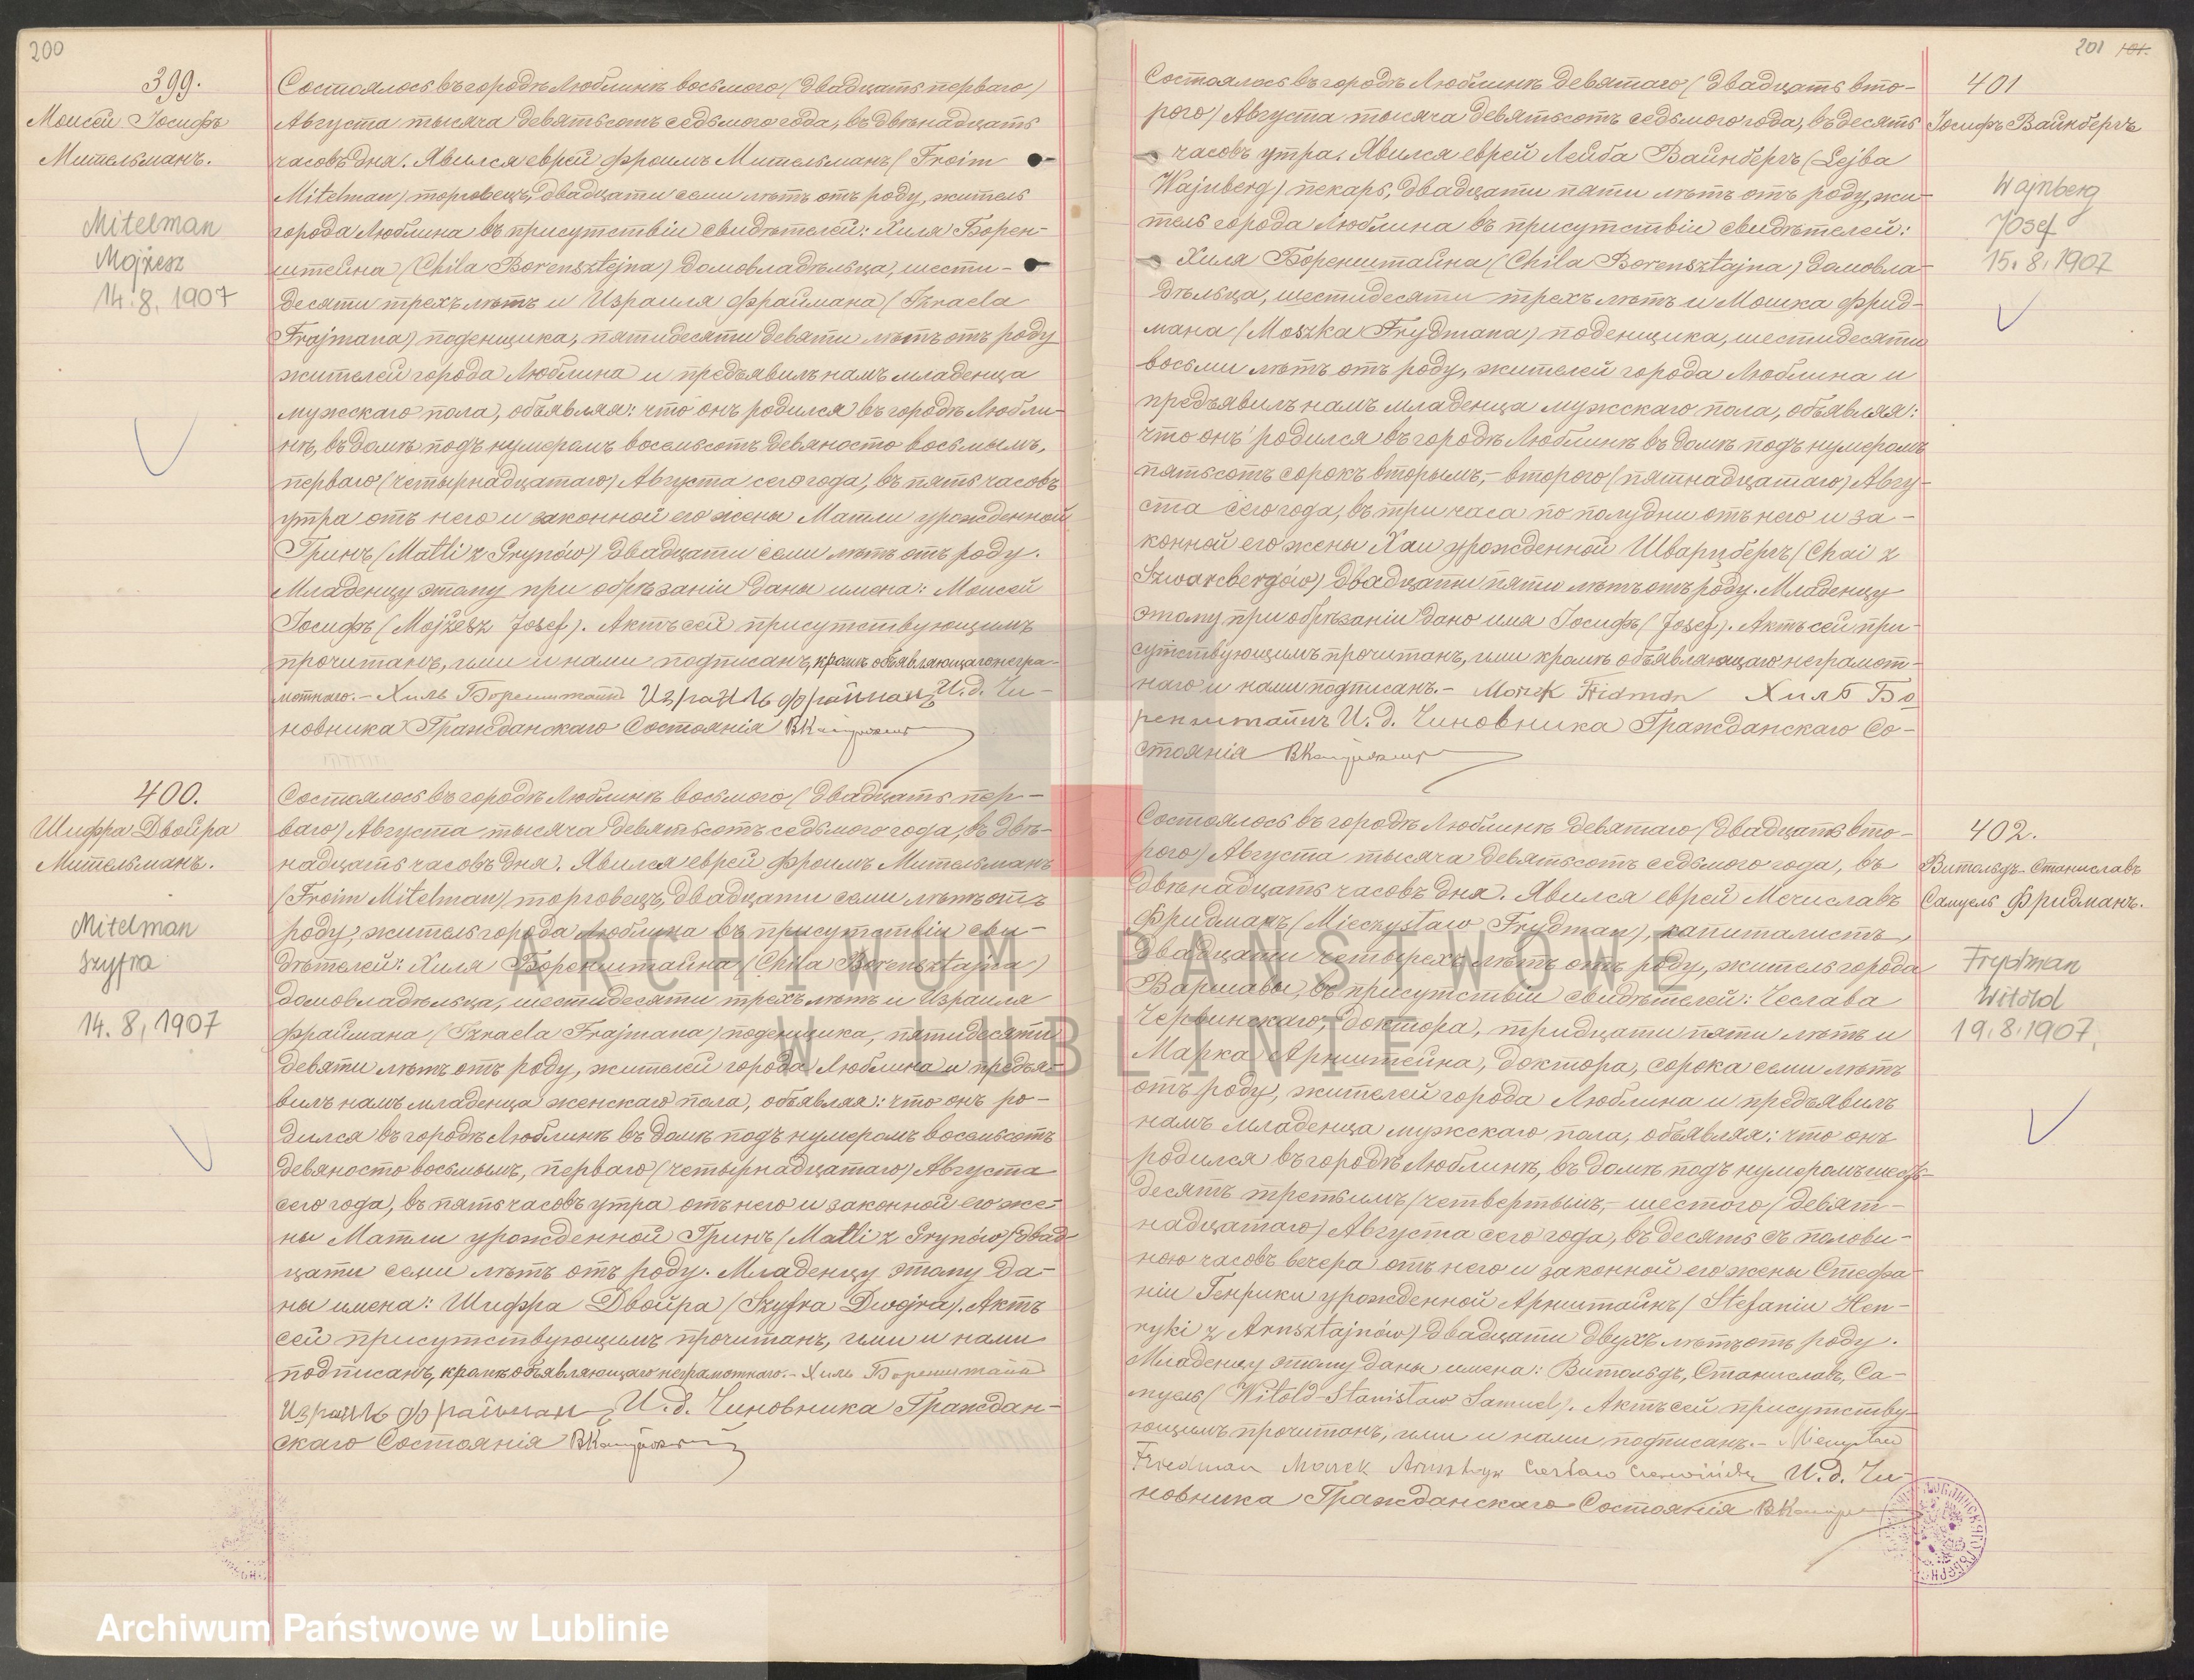 200
399.
Моисей Іосифъ
Мительманъ.
Mitelman
Mojżesz
14.8.1907
Состоялось въ городѣ Люблинѣ восьмого (двадцать перваго)
Августа тысяча девятьсотъ седьмого года, въ двѣнадцать
часовъ дня. Явился еврей Фроимъ Мительманъ (Froim
Mitelman) торговецъ, двадцати семи лѣтъ отъ роду, житель
города Люблина въ присутствіи свидѣтелей: Хиля Борен-
штейна (Chila Borensztejna) домовладѣльца, шести-
десяти трехъ лѣтъ и Израиля Фраймана (Izraela
Frajmana) поденщика, пятидесяти девяти лѣтъ отъ роду
жителей города Люблина и предъявилъ намъ младенца
мужскаго пола, объявляя: что онъ родился въ городѣ Любли-
нѣ, въ домѣ подъ нумеромъ восемьсотъ девяносто восьмымъ,
перваго (четырнадцатаго) Августа сего года, въ пять часовъ
утра отъ него и законной его жены Матли урожденной
Гринъ (Matli z Grynów) двадцати семи лѣтъ отъ роду.
Младенцу этому при обрѣзаніи даны имена: Моисей
Іосифъ (Mojżesz Josef). Актъ сей присутствующимъ
прочитанъ, ими и нами подписанъ, кромѣ объявляющаго негра-
мотнаго.- Хиль Боренштайнъ Израиль Фрайман И.д. Чи-
новника Гражданскаго Состоянія
400.
Шифра Двойра
Мительманъ.
Mitelman
Szyfra
14.8.1907
Состоялось въ городѣ Люблинѣ восьмого (двадцать пер-
ваго) Августа тысяча девятьсотъ седьмого года, въ двѣ-
надцать часовъ дня. Явился еврей Фроимъ Мительманъ
(Froim Mitelman) торговецъ, двадцати семи лѣтъ отъ
роду, житель города Люблина въ присутствіи сви-
дѣтелей: Хиля Боренштайна (Chila Borensztajna)
домовладѣльца, шестидесяти трехъ лѣтъ и Израиля
Фраймана (Izraela Frajmana) поденщика, пятидесяти
девяти лѣтъ отъ роду, жителей города Люблина и предъя-
вилъ намъ младенца женскаго пола, объявляя: что онъ ро-
дился въ городѣ Люблинѣ въ домѣ подъ нумеромъ восемьсотъ
девяносто восьмымъ, перваго (четырнадцатаго) Августа
сего года, въ пять часовъ утра отъ него и законной его же-
ны Матли урожденной Гринъ (Matli z Grynów) двад-
цати семи лѣтъ отъ роду. Младенцу этому да-
ны имена: Шифра Двойра (Szyfra Dwojra). Актъ
сей присутствующимъ прочитанъ, ими и нами
подписанъ, кромѣ объявляющаго неграмотнаго.- Хиль Боренштайнъ
Израиль Фрайман И.д. Чиновника Граждан-
скаго Состоянія
201 101.
Состоялось въ городѣ Люблинѣ девятаго (двадцать вто-
рого) Августа тысяча девятьсотъ седьмого года, въ десять
часовъ утра. Явился еврей Лейба Вайнбергъ (Lejba
Wajnberg) пекарь, двадцати пяти лѣтъ отъ роду, жи-
тель города Люблина въ присутствіи свидѣтелей:
Хиля Боренштайна (Chila Borensztajna) домовла-
дѣльца, шестидесяти трехъ лѣтъ и Мошка Фрид-
мана (Moszka Frydmana) поденщика, шестидесяти
восьми лѣтъ отъ роду, жителей города Люблина и
предъявилъ намъ младенца мужскаго пола, объявляя:
что онъ родился въ городѣ Люблинѣ въ домѣ подъ нумеромъ
пятьсотъ сорокъ вторымъ,- второго (пятнадцатаго) Авгу-
ста сего года, въ три часа по полудни отъ него и за-
конной его жены Хаи урожденной Шварцбергъ (Chai z
Szwarcbergów) двадцати пяти лѣтъ отъ роду. Младенцу
этому при обрѣзаніи дано имя Іосифъ (Josef). Актъ сей при-
сутствующимъ прочитанъ, ими кромѣ объявляющаго неграмот-
наго и нами подписанъ.- Morek Fridman Хиль Бо
ренштайнъ И.д. Чиновника Гражданскаго Со-
стоянія
401
Іосифъ Вайнбергъ
Wajnberg
Josef
15.8.1907
Состоялось въ городѣ Люблинѣ девятаго (двадцать вто-
рого) Августа тысяча девятьсотъ седьмого года, въ
двѣнадцать часовъ дня. Явился еврей Мечиславъ
Фридманъ (Mieczysław Frydman), капиталистъ,
двадцати четырехъ лѣтъ отъ роду, житель города
Варшавы, въ присутствіи свидѣтелей: Чеслава
Червинскаго, доктора, тридцати пяти лѣтъ и
Марка Арнштейна, доктора, сорока семи лѣтъ
отъ роду, жителей города Люблина и предъявилъ
намъ младенца мужскаго пола, объявляя: что онъ
родился въ городѣ Люблинѣ, въ домѣ подъ нумеромъ шесть-
десятъ третьимъ/четвертымъ,- шестого (девят-
надцатаго) Августа сего года, въ десять съ полови-
ною часовъ вечера отъ него и законной его жены Стефа-
ніи Генрики урожденной Арнштайнъ (Stefanii Hen-
ryki z Arnsztajnów) двадцати двухъ лѣтъ отъ роду.
Младенцу этому даны имена: Витольдъ, Станиславъ, Са-
муель (Witold-Stanisław Samuel). Актъ сей присутству-
ющимъ прочитанъ, ими и нами подписанъ.- Mieczysław
Friedman Marek Arnsztejn Czesław Czerwiński И.д. Чи-
новника Гражданскаго Состоянія
402.
Витольдъ-Станиславъ
Самуель Фридманъ.
Frydman
Witold
19.8.1907.
ARCHIWUM PAŃSTWOWE
W LUBLINIE
Archiwum Państwowe w Lublinie